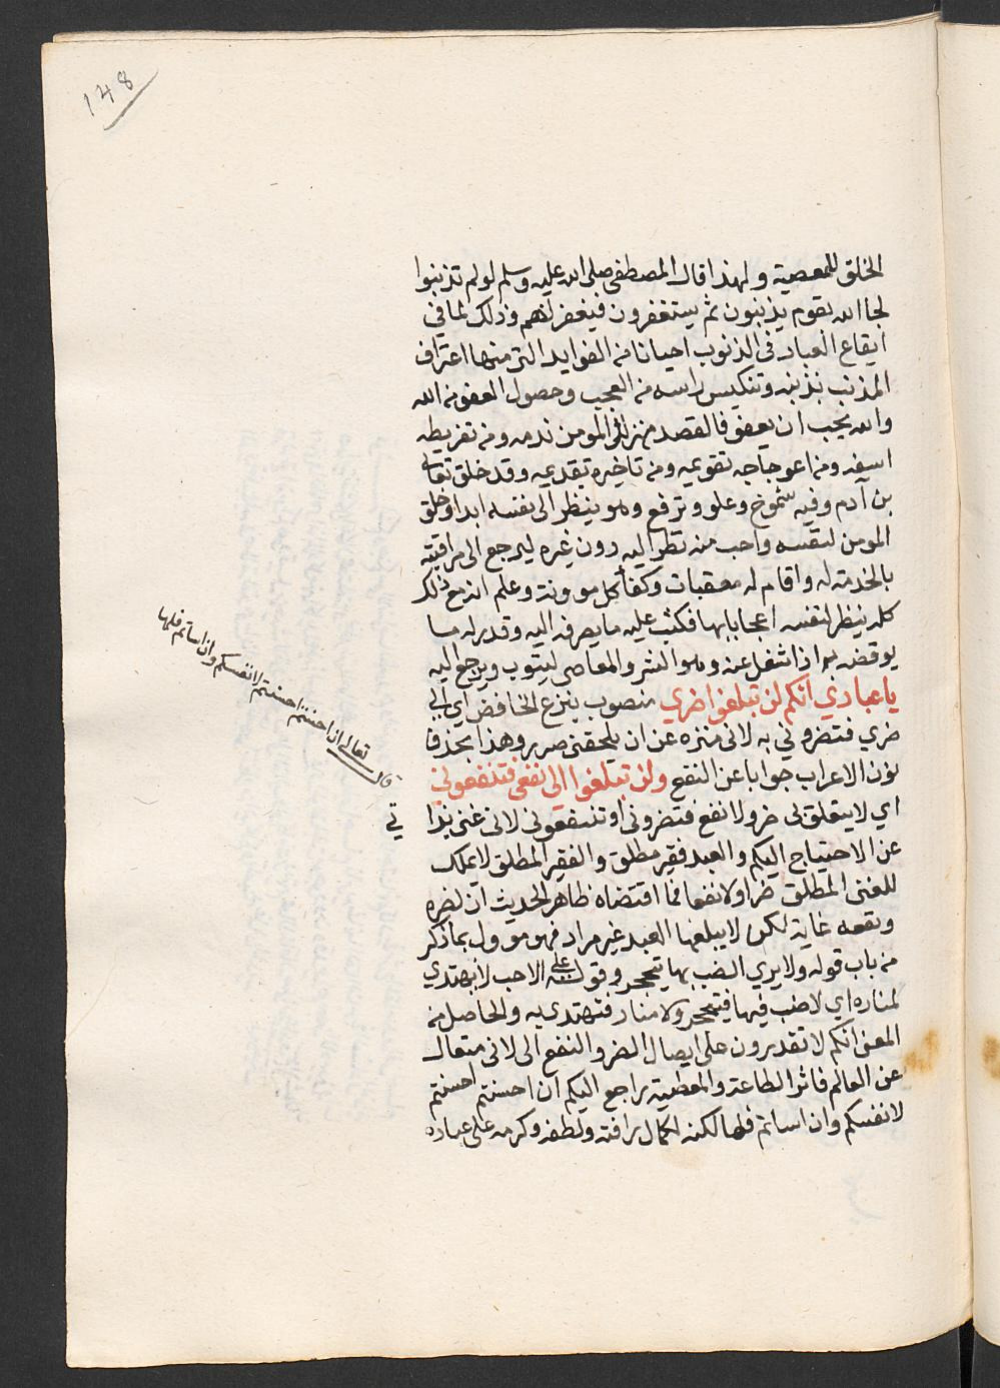 148
الخلق للمعصية ولهذا قال المصطفى صلى الله عليه وسلم لو لم تذنبوا
لجا الله بقوم يذنبون ثم يستغفرون فيغفر لهم وذلك لما في
ايقاع العباد في الذنوب احيانا من الفوايد التي منها اعتراف
المذنب بذنبه وتنكيس راسه من العجب وحصول العفو من الله
والله يحب ان يعفو فالقصد من زلل المومن ندمه ومن تفريطه
اسفه ومن اعوجاجه تقويمه ومن تاخيره تقديمه وقد خلق تعالى
بن آدم وفيه شموخ وعلو وترفع وهو ينظر الى نفسه ابدا وخلق
المومن لنفسه واحب منه نظره اليه دون غيره ليرجع الى مراقبته
بالخدمة له واقام له معقبات وكفاه كل موونة وعلم انه مع ذلك
كله ينظر لنفسه اعجابا بها فكتب عليه ما يصرفه اليه وقدر له ما
يوقضه به اذا شغل عنه وهو الشر والمعاصى ليتوب ويرجع اليه
يا عبادي انكم لن تبلغوا ضري منصوب بنزع الخافض اي الى
ضري فتضروني به لانى منزه عن ان يلحقنى ضرر وهذا بحذف
نون الاعراب جوابا عن النفى ولن تبلغوا الى نفعى فتنفعونى
اي لا يتعلق بى ضر ولا نفع فتضرونى او تنفعونى لانى غنى
عن الاحتياج اليكم والعبد فقير مطلق والفقير المطلق لا يملك
للغنى المطلق ضرا ولا نفعا فما اقتضاه ظاهر الحديث ان لضره
ونفعه غاية لكن لا يبلغها العبد غير مراد فهو موول بما ذكر
من باب قوله ولا يري الضب بها ينجحر وقوله على الاحب لا يهتدي
لمناره اي لا ضب فيها فينجحر ولا منار فتهتدي به والحاصل من
المعنى انكم لا تقدرون على ايصال الضر والنفع الى لانى متعال
عن العالم فاثر الطاعة والمعصية راجع اليكم ان احسنتم احسنتم
لانفسكم وان اساتم فلها لكنه لكمال رافته ولطفه وكرمه على عباده
قال تعالى ان احسنتم احسنتم لانفسكم وان اساتم فلها